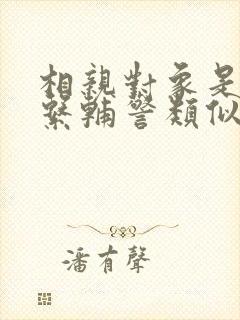 相親對象是
警類似
潘有聲